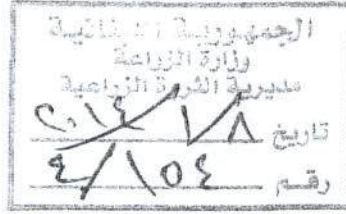 الجمهورية اللبنانية
وزارة الزراعة
مديرية الثروة الزراعية
تاريخ ٢٠١٤/١/٨
رقم ٤/١٥٤